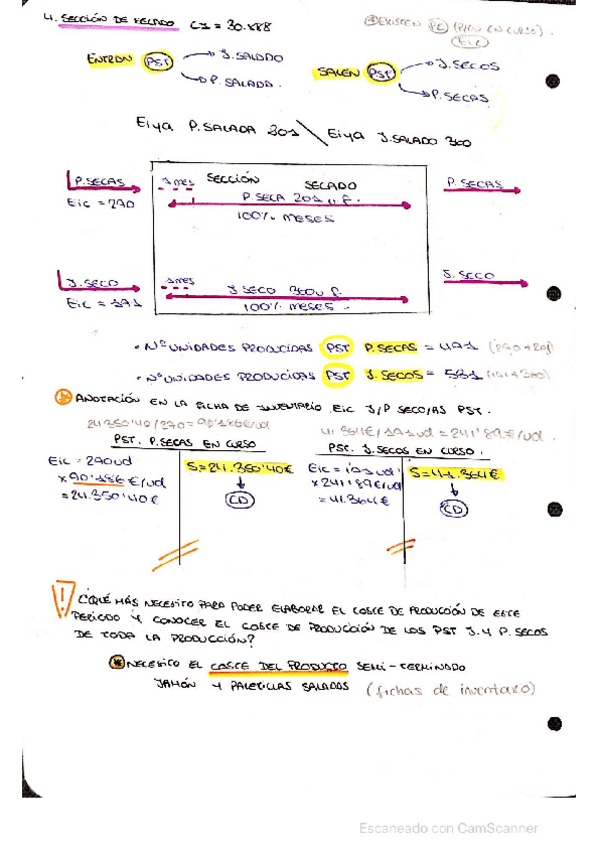 4. SECCIÓN DE SECADO CI = 30.888
EXISTEN PC (PROD EN CURSO).
Eic
ENTRAN PST J. SALADO
P. SALADA.
SALEN PST J. SECOS
P. SECAS
Eiya P. SALADA 201 \ Eiya J. SALADO 360
P. SECAS
Eic = 270
1 MES SECCIÓN SECADO
P. SECA 201 u.f.
100% MESES
P. SECAS
J. SECO
Eic = 171
1 MES
J. SECO 360 u f.
100% MESES
J. SECO
• Nº UNIDADES PRODUCIDAS PST P. SECAS = 471 (270+201)
• Nº UNIDADES PRODUCIDAS PST J. SECOS = 531 (171+360)
ANOTACIÓN EN LA FICHA DE INVENTARIO Eic J/P SECO/AS PST.
24.350'40/270 = 90'186€/ud
41.364€/171ud = 241'89€/ud.
PST. P. SECAS EN CURSO
PST. J. SECOS EN CURSO.
Eic = 270ud
× 90'186 €/ud
= 24.350'40€
S = 24.350'40€
CD
Eic = 171ud
× 241'89€/ud
= 41.364€
S = 41.364€
CD
! ¿QUÉ MÁS NECESITO PARA PODER ELABORAR EL COSTE DE PRODUCCIÓN DE ESTE
PERIODO Y CONOCER EL COSTE DE PRODUCCIÓN DE LOS PST J. Y P. SECOS
DE TODA LA PRODUCCIÓN?
NECESITO EL COSTE DEL PRODUCTO SEMI-TERMINADO
JAMÓN Y PALETILLAS SALADOS (fichas de inventario)
Escaneado con CamScanner